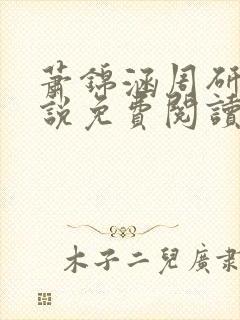 蕭錦涵周研
說免費閱讀
木子二兒廣隶